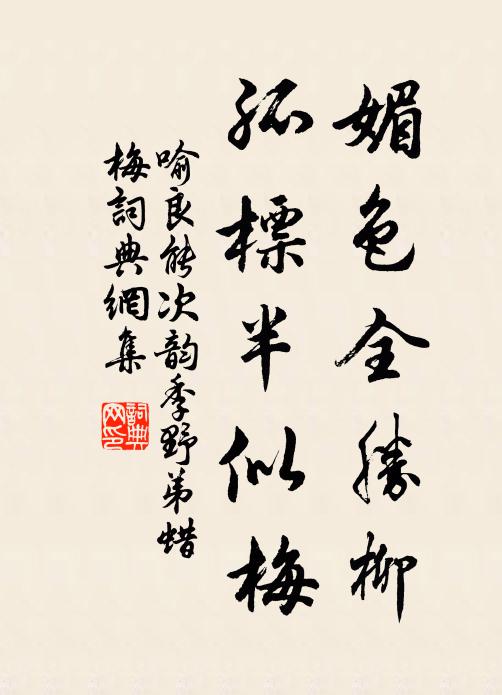 媚色全勝柳
孤標半似梅
喻良能次韵季野弟蜡
梅詞典網集
詞典网印